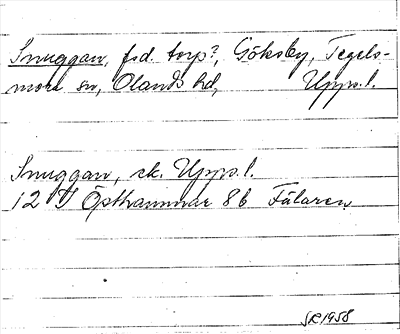 Snuggan, fsd. torp?, Göksby, Tegels-
mora sn, Olands hd, Upps.l.
Snuggan, ek. Upps.l.
12 I Östhammar 8b Fälaren
SR 1958